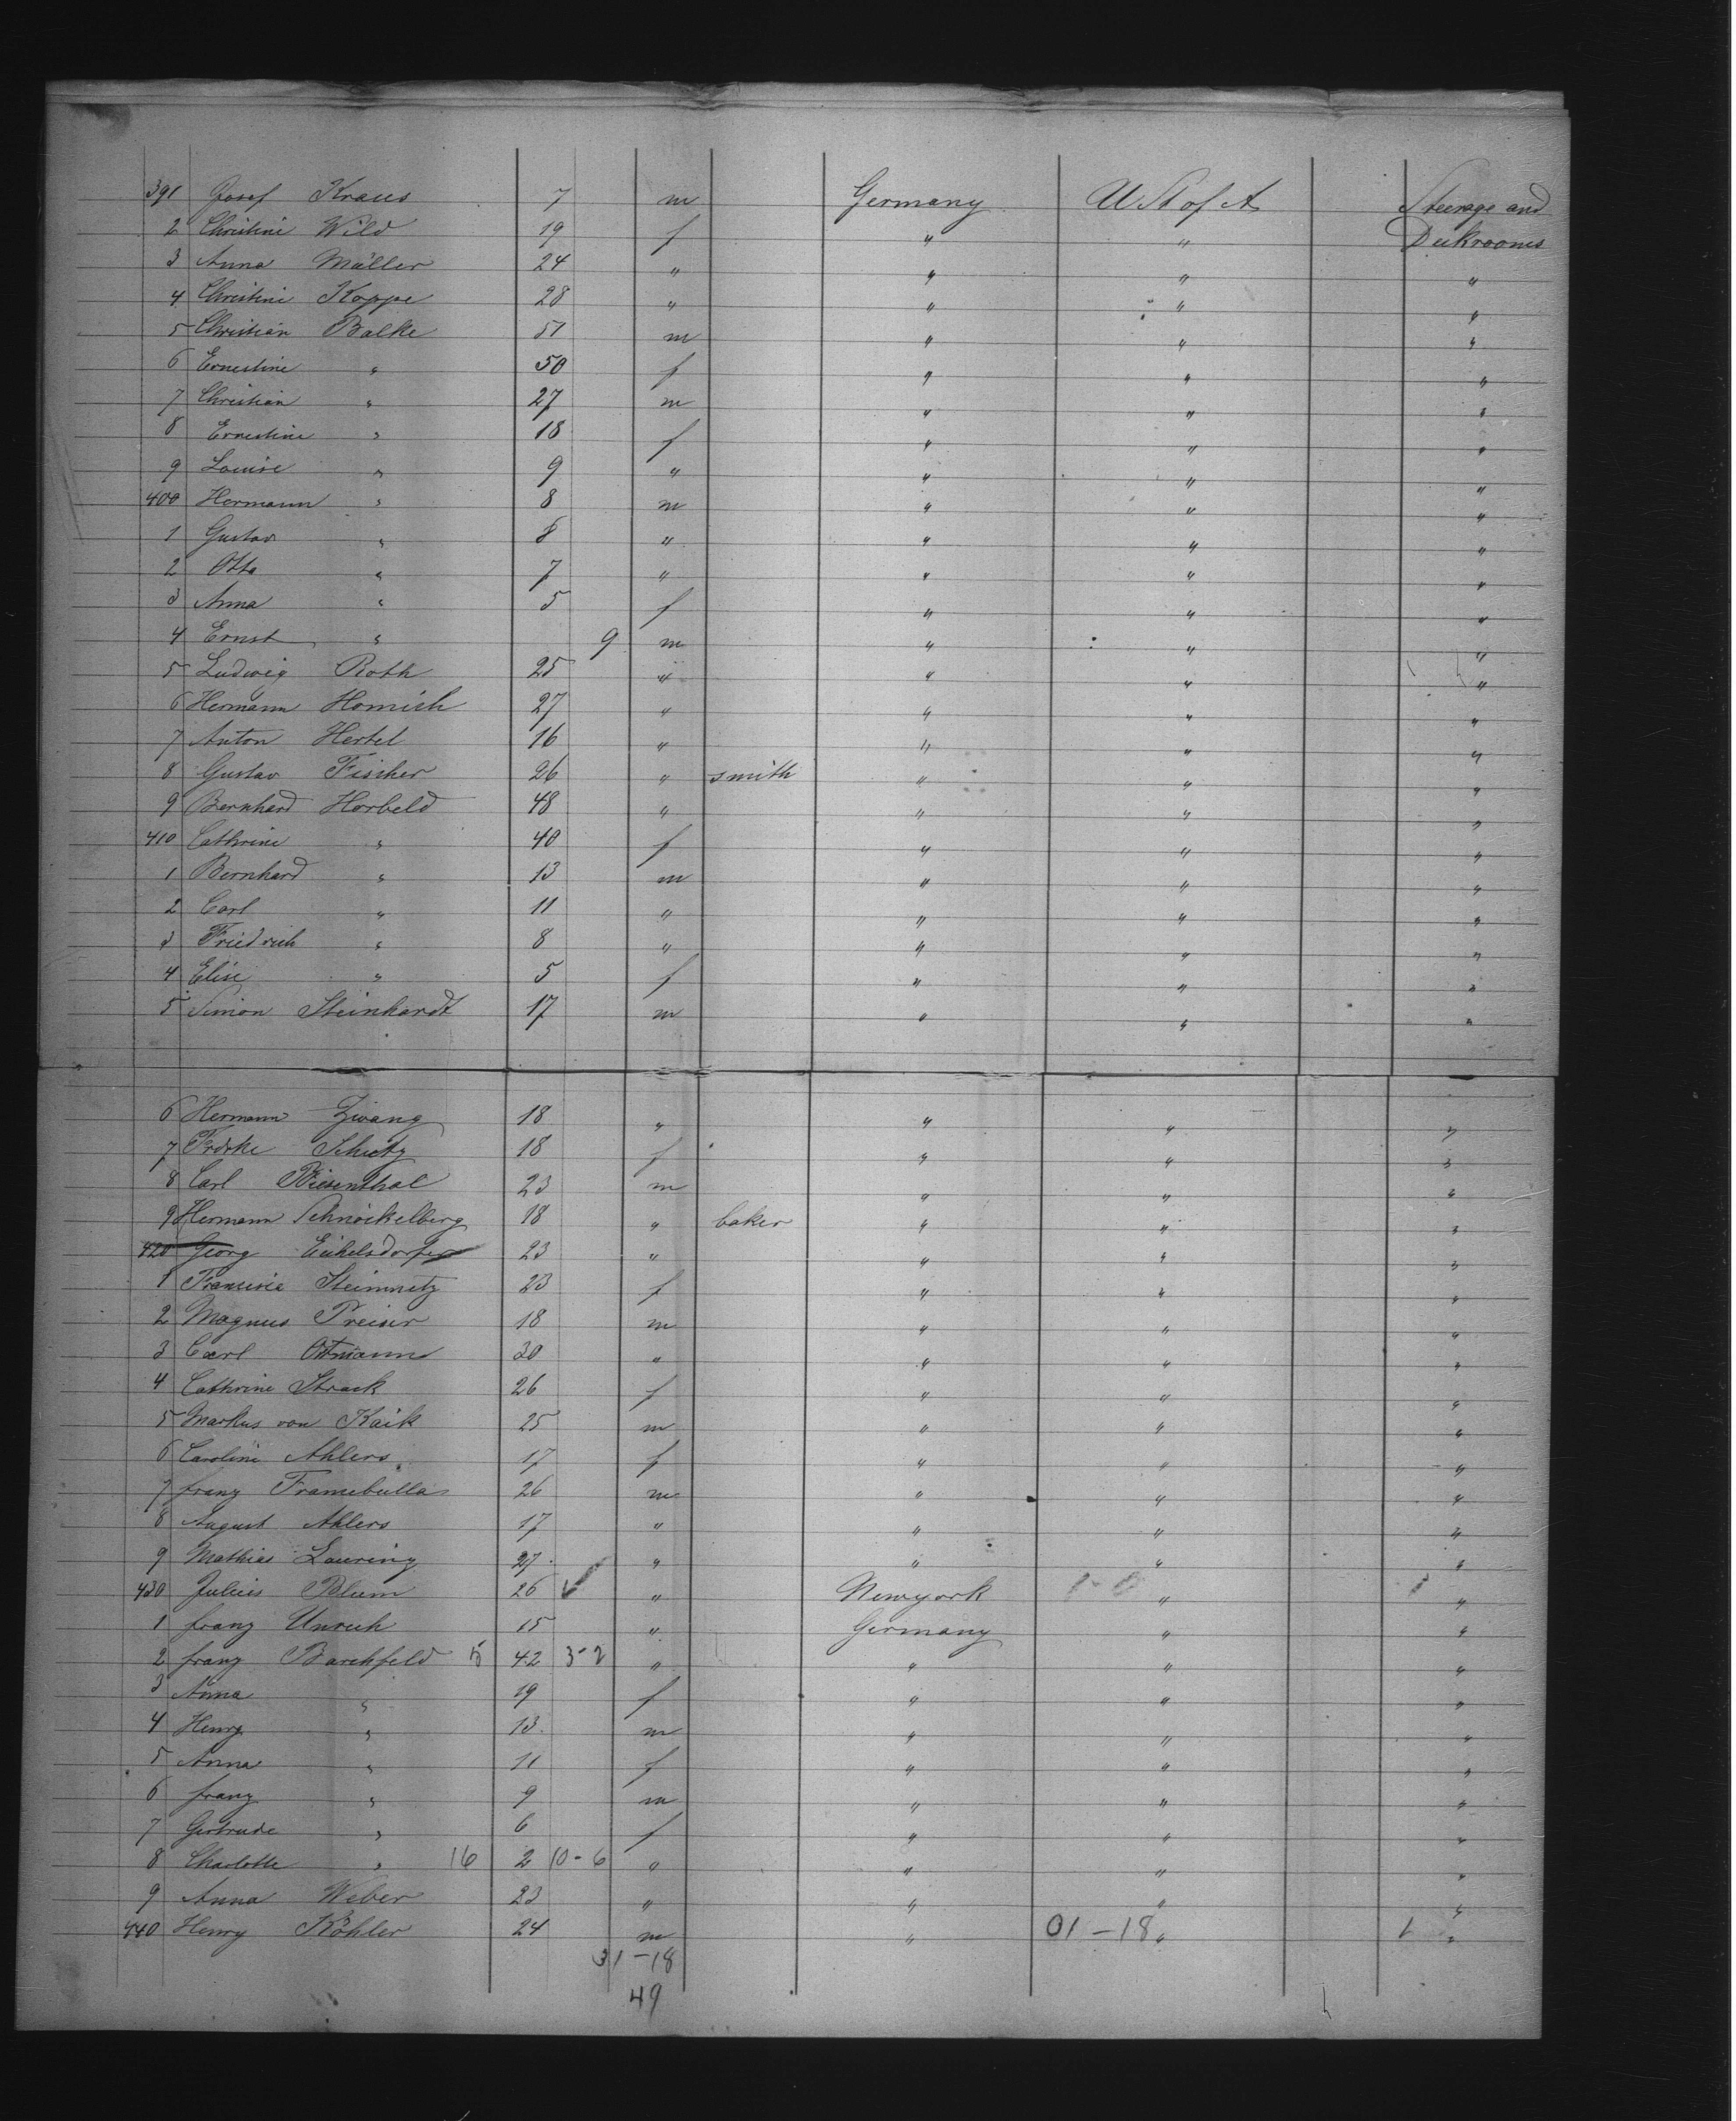 391 Josef Kraus 7 m Germany U St of A Steerage and
2 Christine Wild 19 f " " Deckrooms
3 Anna Müller 24 " " " "
4 Christine Koppe 28 " " " "
5 Christian Balke 51 m " " "
6 Ernestine " 50 f " " "
7 Christian " 27 m " " "
8 Ernestine " 18 f " " "
9 Louise " 9 " " " "
400 Hermann " 8 m " " "
1 Gustav " 8 " " " "
2 Otto " 7 " " " "
3 Anna " 5 f " " "
4 Ernst " 9 m " " "
5 Ludwig Roth 25 " " " "
6 Hermann Homich 27 " " " "
7 Anton Hertel 16 " " " "
8 Gustav Fischer 26 " smith " " "
9 Bernhard Horbeld 48 " " " "
410 Cathrine " 40 f " " "
1 Bernhard " 13 m " " "
2 Carl " 11 " " " "
3 Friedrich " 8 " " " "
4 Elise " 5 f " " "
5 Simon Steinhardt 17 m " " "
6 Hermann Zwang 18 " " " "
7 Frdrke Schutz 18 f " " "
8 Carl Riesenthal 23 m " " "
9 Hermann Schnöckelberg 18 " baker " " "
420 Georg Eichelsdorfer 23 " " " "
1 Steinmetz 23 f " " "
2 Magnus Preiser 18 m " " "
3 Carl Ottmann 30 " " " "
4 Cathrine Strack 26 f " " "
5 Markus von Kaik 25 m " " "
6 Caroline Ahlers 17 f " " "
7 franz Framebulla 26 m " " "
8 August Ahlers 17 " " " "
9 Mathias Lauring 27 " " " "
430 Julius Blum 26 " Newyork 1-0 " 1 "
1 franz Unruh 15 " Germany " "
2 franz Barchfeld 5 42 3-2 " " " "
3 Anna " 19 f " " "
4 Henry " 13 m " " "
5 Anna " 11 f " " "
6 franz " 9 m " " "
7 Gertrude " 6 f " " "
8 Charlotte " 16 2 10-6 " " " "
9 Anna Weber 23 " " " "
440 Henry Köhler 24 m " 01-18 " 1 "
31-18
49